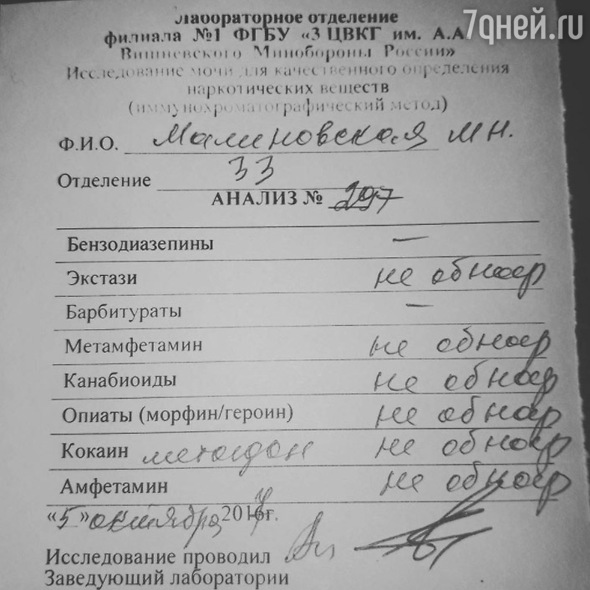 7дней.ru
Лабораторное отделение
филиала №1 ФГБУ «3 ЦВКГ им. А.А.
Вишневского Минобороны России»
Исследование мочи для качественного определения
наркотических веществ
(иммунохроматографический метод)
Ф.И.О. Малиновская М.Н.
Отделение 33
АНАЛИЗ № 297
Бензодиазепины –
Экстази не обнар
Барбитураты –
Метамфетамин не обнар
Канабиоиды не обнар
Опиаты (морфин/героин) не обнар
Кокаин метадон не обнар
Амфетамин не обнар
«5» октября 2017г.
Исследование проводил
Заведующий лаборатории